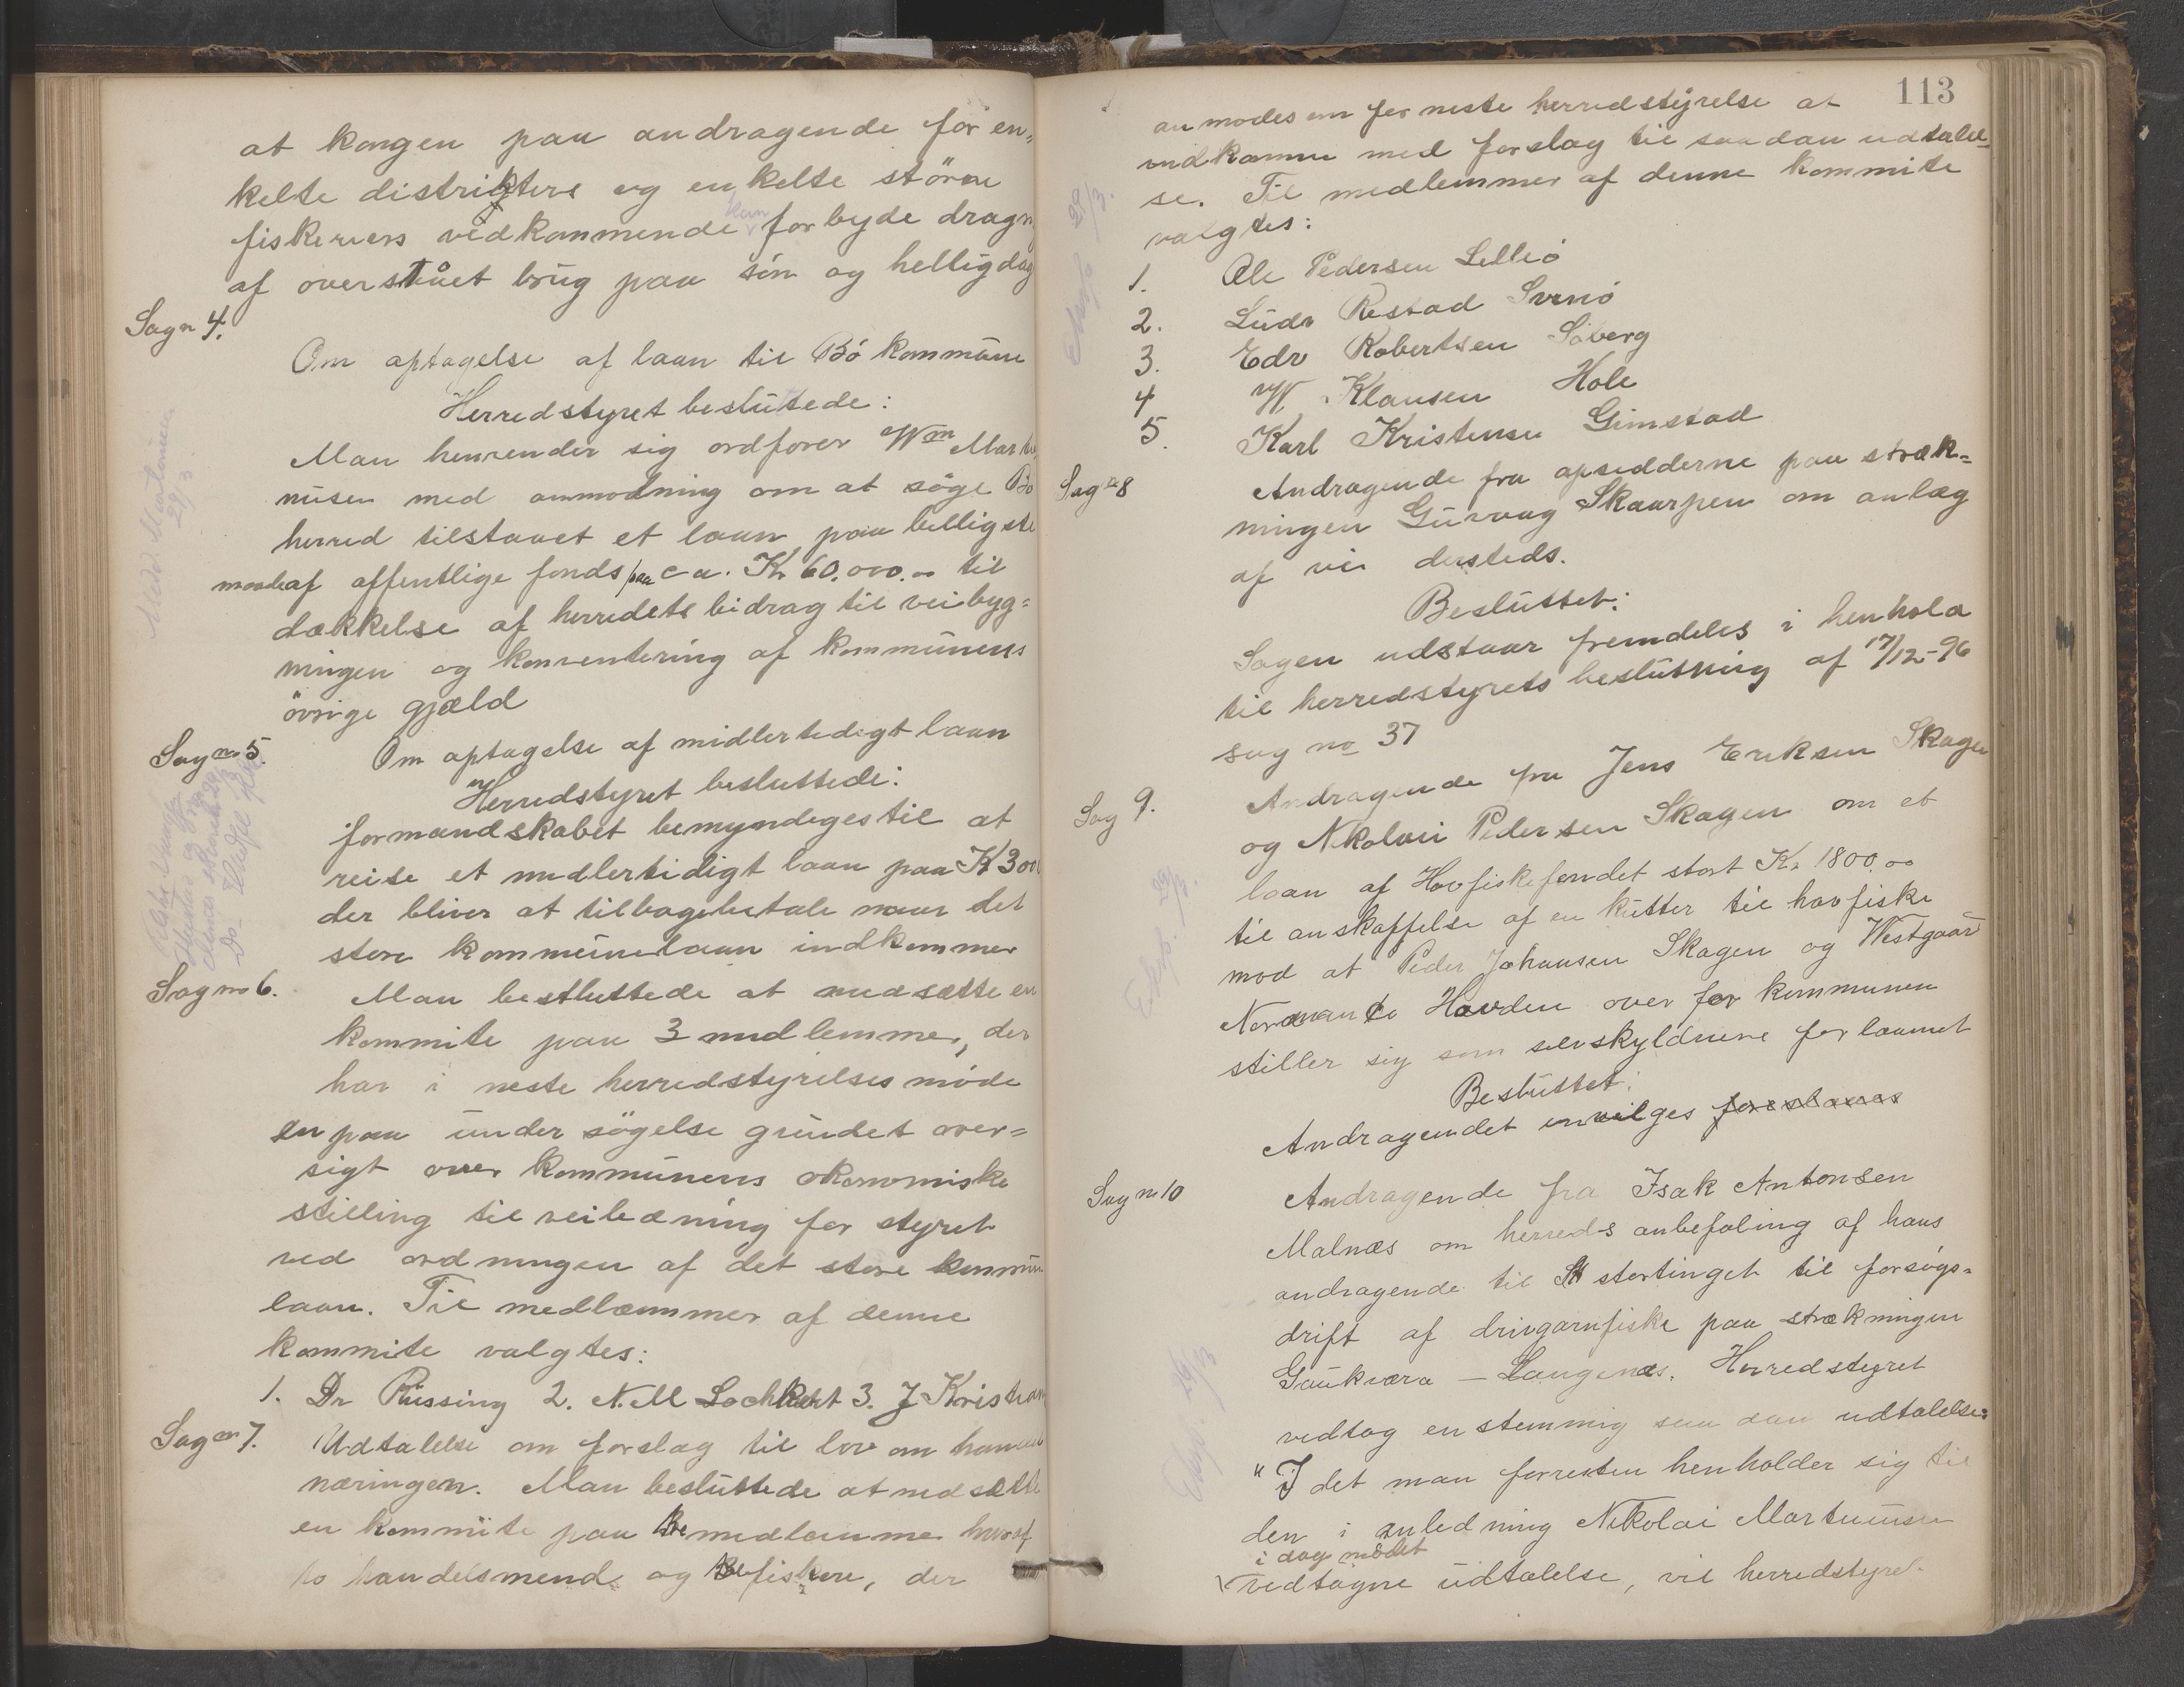 at kongen paa andragende for en„
kelte distrikters og enkelte större
fiskeriers vedkommende kan forbyde dragn
af overstaaet brug paa sön og helligdag
Sag n 4.
Om optagelse af laan til Bö kommune
Herredstyret besluttede:
Man henvender sig ordförer Wm Marti
nusen med anmodning om at söge Bö
herred tilstaaet et laan paa billigste
maade af offentlige fonds paa ca. Kr 60.000.00 til
dækkelse af herredets bidrag til veibyg=
ningen og konventering af kommunens
övrige gjæld
Sag no 5.
Om optagelse af midlertedigt laan
Herredstyret besluttede:
formandskabet bemyndiges til at
reise et midlertidigt laan paa K 3000
der bliver at tilbagebetale naar det
store kommunelaan indkommer
Sag no 6.
Man besluttede at nedsætte en
kommite paa 3 medlemmer, der
har i neste herredstyrelses möde
en paa under sögelse grundet over=
sigt over kommunens okonomiske
stilling til veiledning for styret
ved ordningen af det store kommun
laan. Til medlæmmer af denne
kommite valgtes:
1. Dr Rüssing 2. N. M Lochkert 3. J Kristian
Sag no 7.
Udtalelse om forslag til lov om handels
næringen. Man besluttede at nedsætte
en kommite paa medlemmer hvoraf
to handelsmend og fiskere, der
Med Martinusen
29/3
113
anmodes om for neste herredstyrelse at
indkomme med forslag til saadan udtalel„
se. Til medlemmer af denne kommite
valgtes:
1. Ole Pedersen Lelliö
2. Ludv Restad Svinö
3. Edv Robertsen Söberg
4 W Klausen Hole
5. Karl Kristensen Gimstad
Sag no 8
Andragende fra opsedderne paa stræk=
ningen Guvaag Skaarpen om anlæg
af vei dersteds.
Besluttet:
Sagen udstaar fremdeles i henhold
til herredstyrets beslutning af 17/12-96
sag no 37
Sag 9.
Andragende fra Jens Eriksen Skagen
og Nikolai Pedersen Skagen om et
laan af Havfiskefondet stort Kr 1800.00
til anskaffelse af en kutter til havfiske
mod at Peder Johansen Skagen og Westgaar
Hovden over for kommunen
stiller sig som selvskyldnere for laanet
Besluttet:
Andragendet invilges
Sag no 10
Andragende fra Isak Antonsen
Malnæs om herreds anbefaling af hans
andragende til stortinget til forsögs=
drift af drivgarnfiske paa strækningen
Gaukværa - Langenæs. Herredstyret
vedtog enstemmig saadan udtalelse:
"I det man forresten henholder sig til
den i anledning Nikolai Martinusen
i dag mödet
vedtagne udtalelse, vil herredstyret